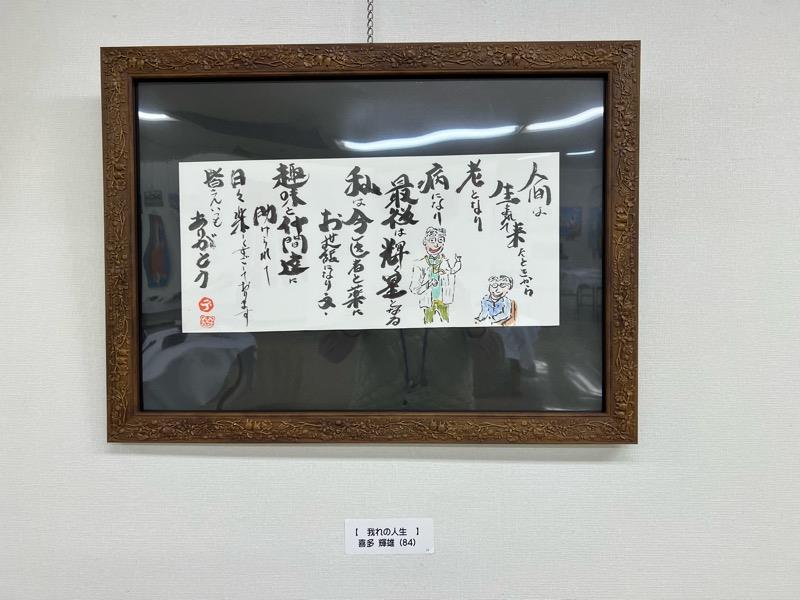 人間は
生れて来たときから
老となり
病になり
最後は輝く星となる
私は今医者と薬に
お世話になり
趣味と仲間達に
助けられて
日々楽しくすごしております
皆さんいつも
ありがとう
テ
【 我れの人生 】
喜多 輝雄（84）